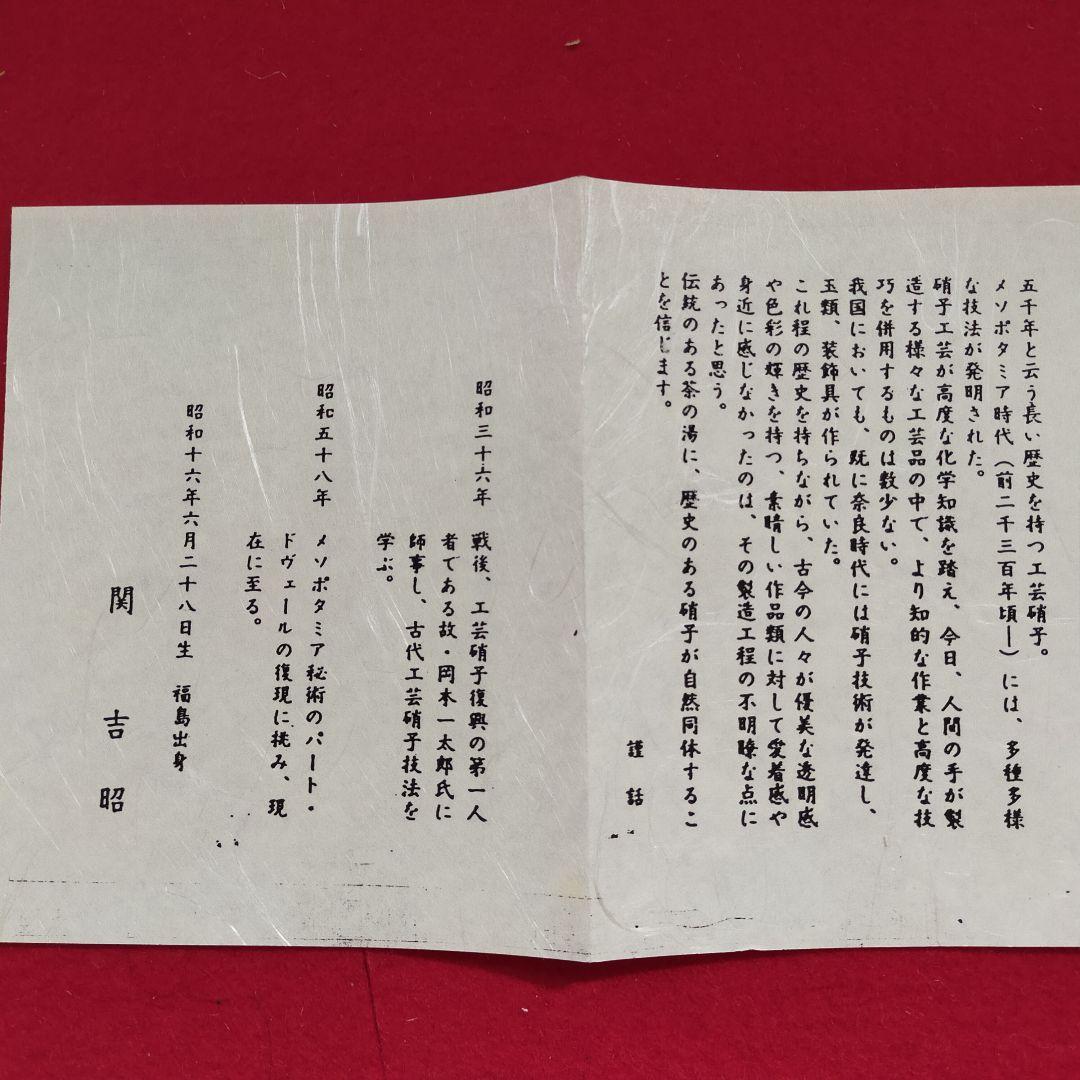 五千年と云う長い歴史を持つ工芸硝子。
メソポタミア時代（前二千三百年頃―）には、多種多様
な技法が発明された。
硝子工芸が高度な化学知識を踏え、今日、人間の手が製
造する様々な工芸品の中で、より知的な作業と高度な技
巧を併用するものは数少ない。
我国においても、既に奈良時代には硝子技術が発達し、
玉類、装飾具が作られていた。
これ程の歴史を持ちながら、古今の人々が優美な透明感
や色彩の輝きを持つ、素晴しい作品類に対して愛着感や
身近に感じなかったのは、その製造工程の不明瞭な点に
あったと思う。
伝統のある茶の湯に、歴史のある硝子が自然同体するこ
とを信じます。
謹話
昭和三十六年 戦後、工芸硝子復興の第一人
者である故・岡本一太郎氏に
師事し、古代工芸硝子技法を
学ぶ。
昭和五十八年 メソポタミア秘術のパート・
ドヴェールの復現に挑み、現
在に至る。
昭和十六年六月二十八日生 福島出身
関吉昭